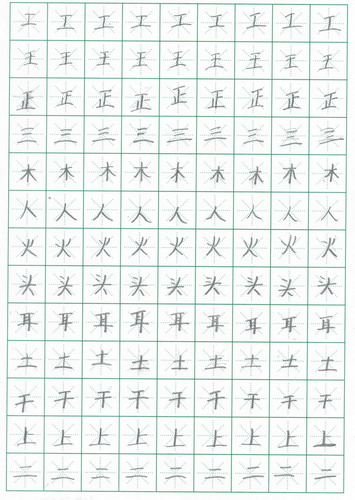 工工工工工工工工工
王王王王王王王王王
正正正正正正正正正
三三三三三三三三三
木木木木木木木木木
人人人人人人人人人
火火火火火火火火火
头头头头头头头头头
耳耳耳耳耳耳耳耳耳
土土土土土土土土土
干干干干干干干干干
上上上上上上上上上
二二二二二二二二二